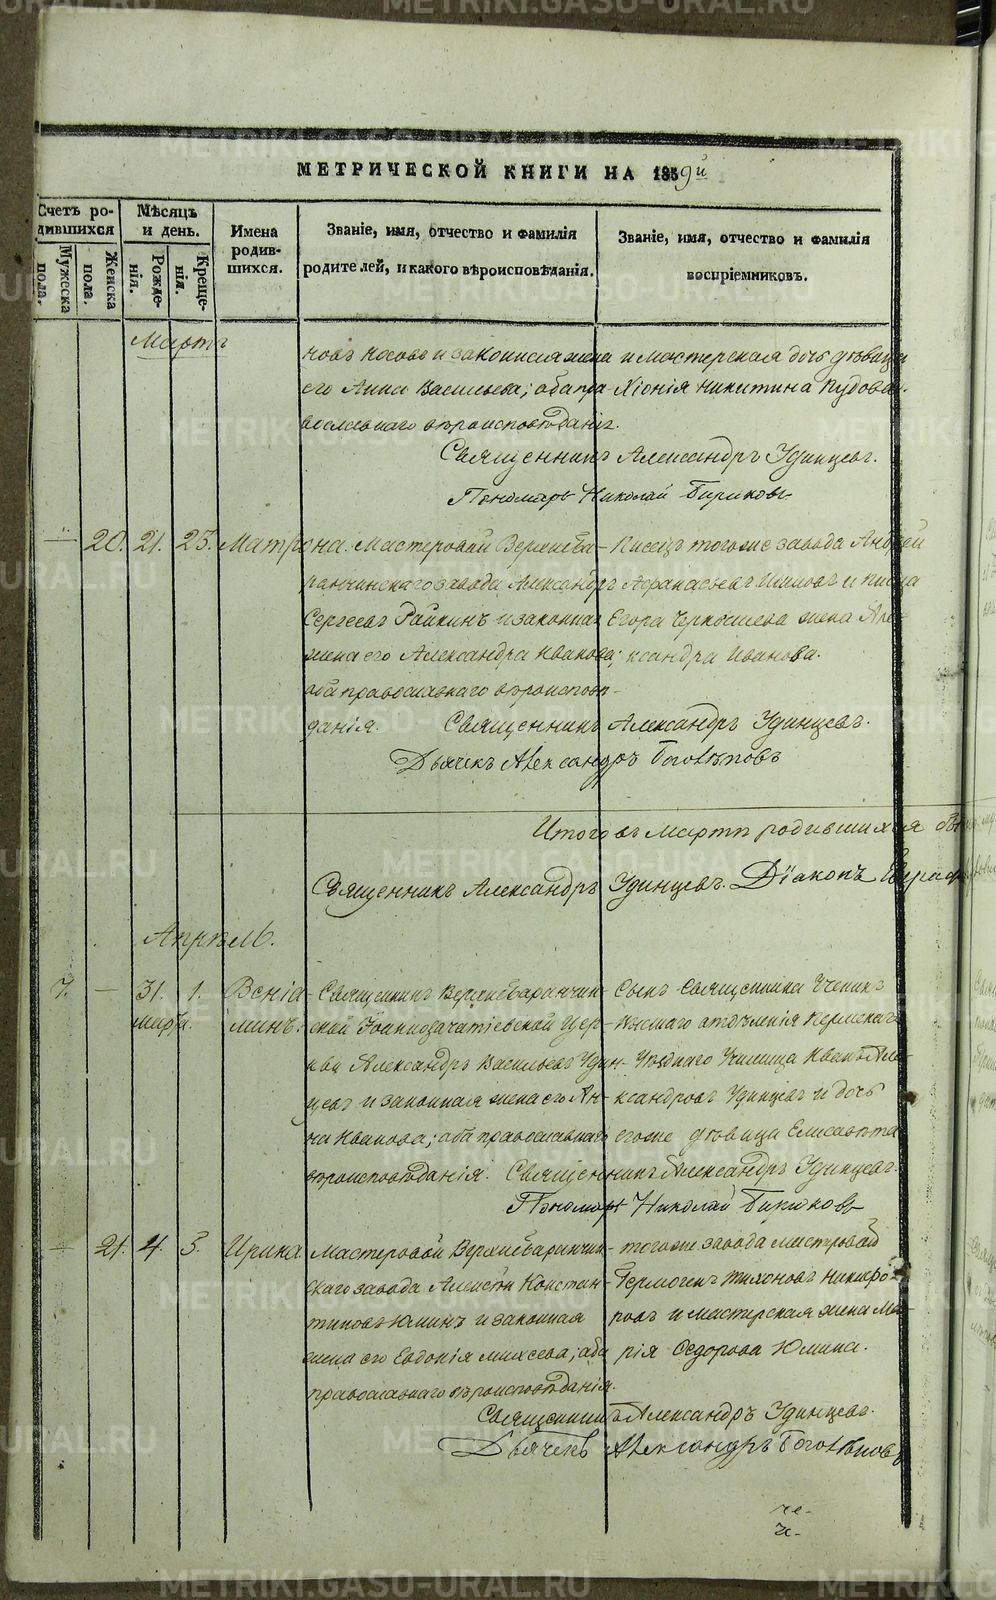 МЕТРИЧЕСКОЙ КНИГИ НА 1859й
Счетъ родившихся
Мѣсяцъ и день.
Имена родившихся.
Званіе, имя, отчество и фамилія родителей, и какого вѣроисповѣданія.
Званіе, имя, отчество и фамилія воспріемниковъ.
Мужеска пола.
Женска пола.
Рожденія.
Крещенія.
Мартъ
новъ Носовъ и законная жена
его Анна Васильева; оба пра
вославнаго вѣроисповѣданія.
и мастерская дочь дѣвица
Хіонія Никитина Пудова.
Священникъ Александръ Удинцевъ.
Пономарь Николай Бирюковъ
— 20. 21. 25. Матрона.
Мастеровой Верхнеба-
ранчинскаго завода Александръ
Сергеевъ Райкинъ и законная
жена его Александра Иванова;
оба православнаго вѣроисповѣ-
данія.
Писецъ тогоже завода Андрей
Афанасьевъ и писца
Егора жена Але-
ксандра Иванова.
Священникъ Александръ Удинцевъ.
Дьячекъ Александръ Боголѣповъ
Итого въ Мартѣ родившихся
Священникъ Александръ Удинцевъ. Діаконъ
Апрѣль.
7. — 31. марта. 1. Веніаминъ.
Священникъ Верхнебаранчин-
ской Іоаннозачатіевской Цер-
кви Александръ Васильевъ Удин-
цевъ и законная жена его Ан-
на Иванова; оба православнаго
вѣроисповѣданія.
Сынъ Священника Ученикъ
Низшаго отдѣленія Пермскаго
Уѣзднаго Училища Иванъ Але-
ксандровъ Удинцевъ и дочь
егоже дѣвица Елисавета
Священникъ Александръ Удинцевъ.
Пономарь Николай Бирюковъ
— 21. 4. 5. Ирина
Мастеровой Верхнебаранчин-
скаго завода Алексѣй Констан-
тиновъ Юминъ и законная
жена его Евдокія Михеева; оба
православнаго вѣроисповѣданія.
тогоже завода мастеровой
Гермогенъ Тихоновъ Никифо-
ровъ и мастерская жена Ма-
рія Ѳедорова Юмина.
Священникъ Александръ Удинцевъ.
Дьячекъ Александръ Боголѣповъ